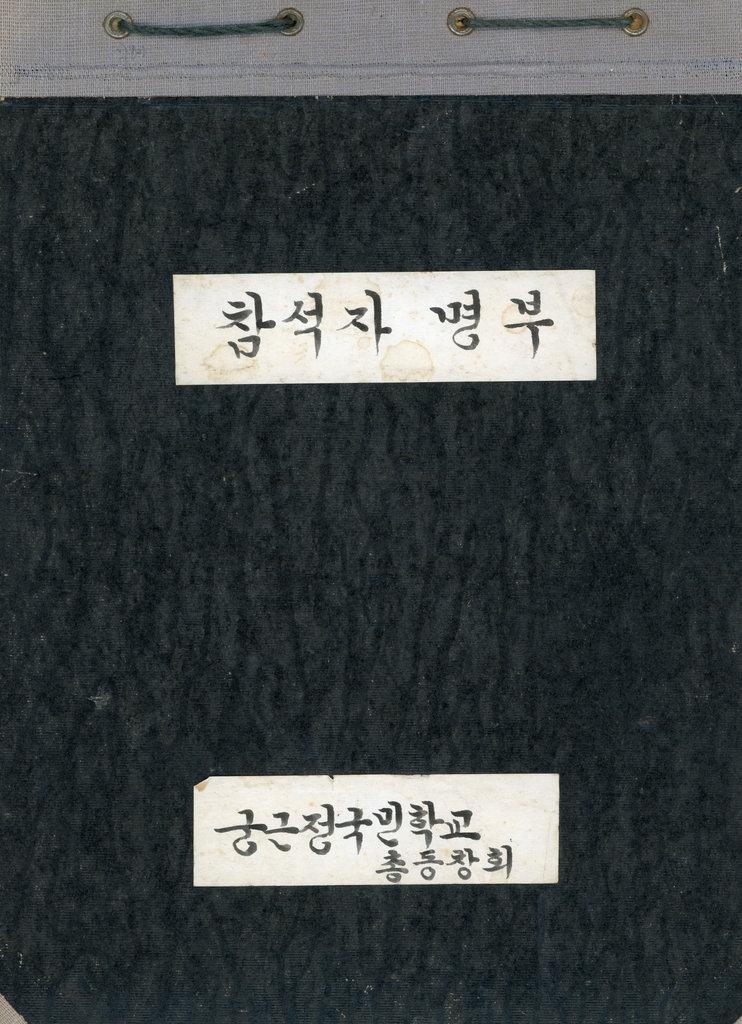 참석자 명부
궁근정국민학교
총동창회